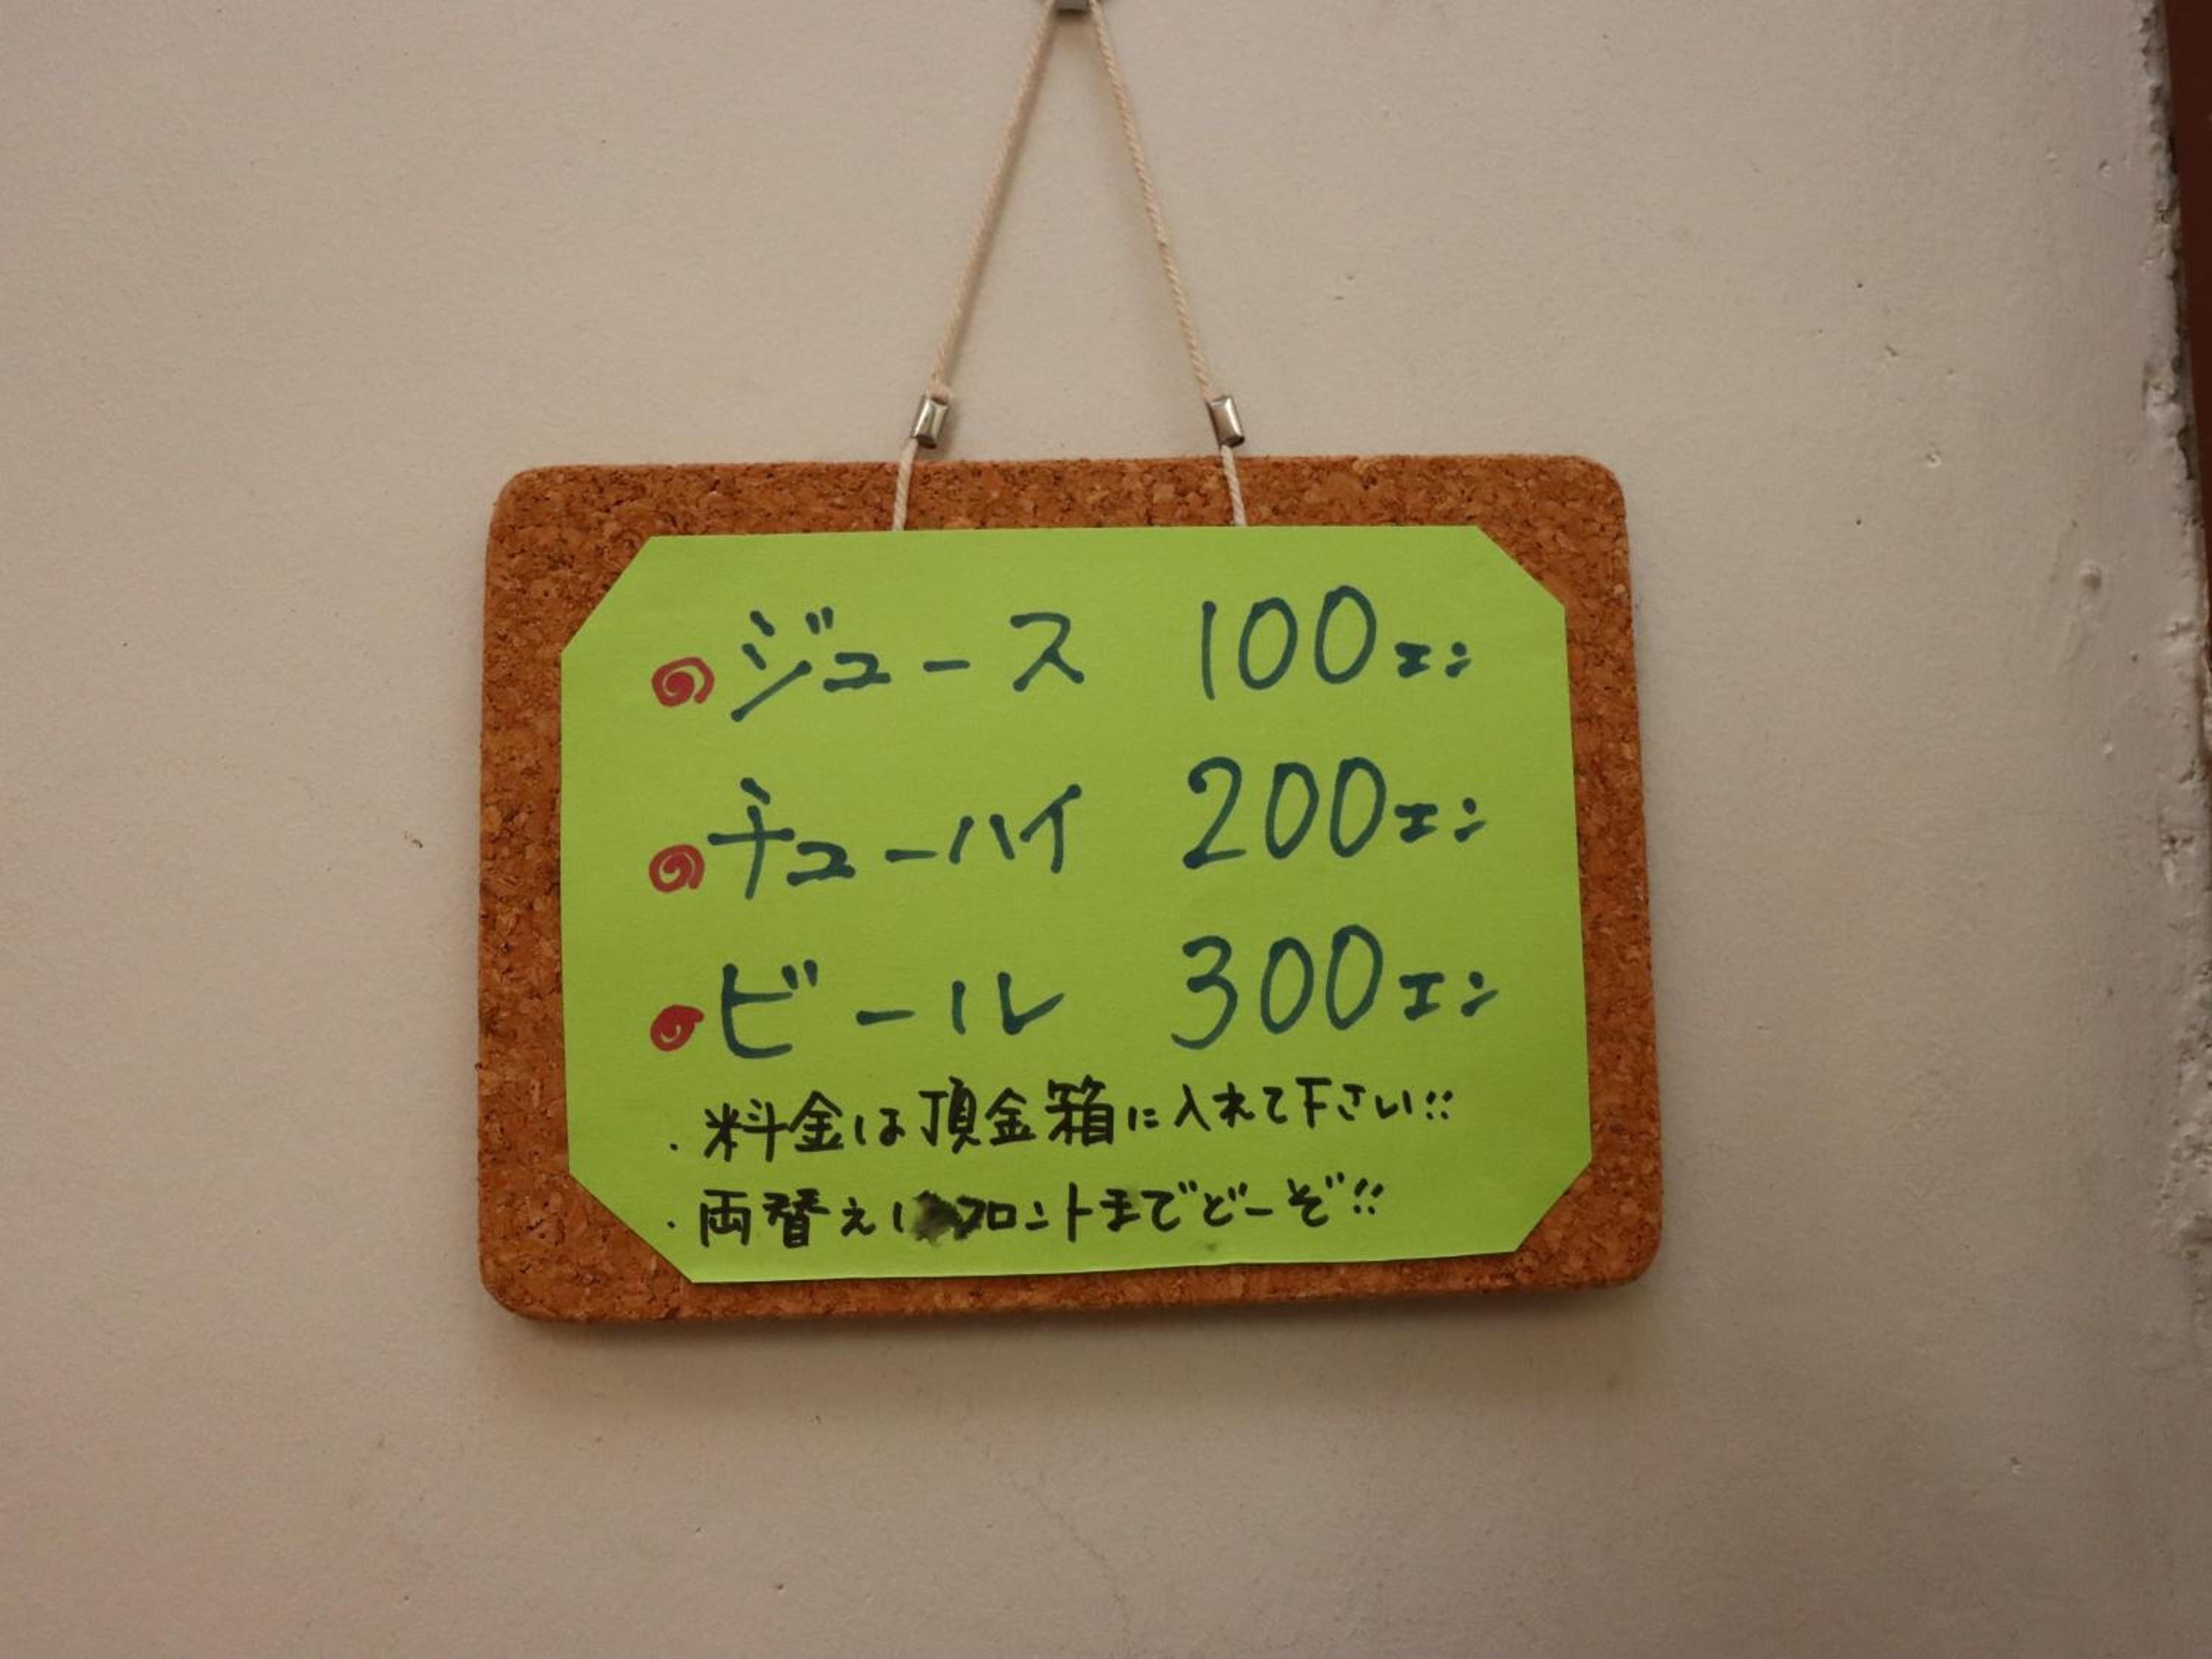 ジュース 100エン
チューハイ 200エン
ビール 300エン
・料金は頂金箱に入れて下さい!!
・両替えはフロントまでどーぞ!!